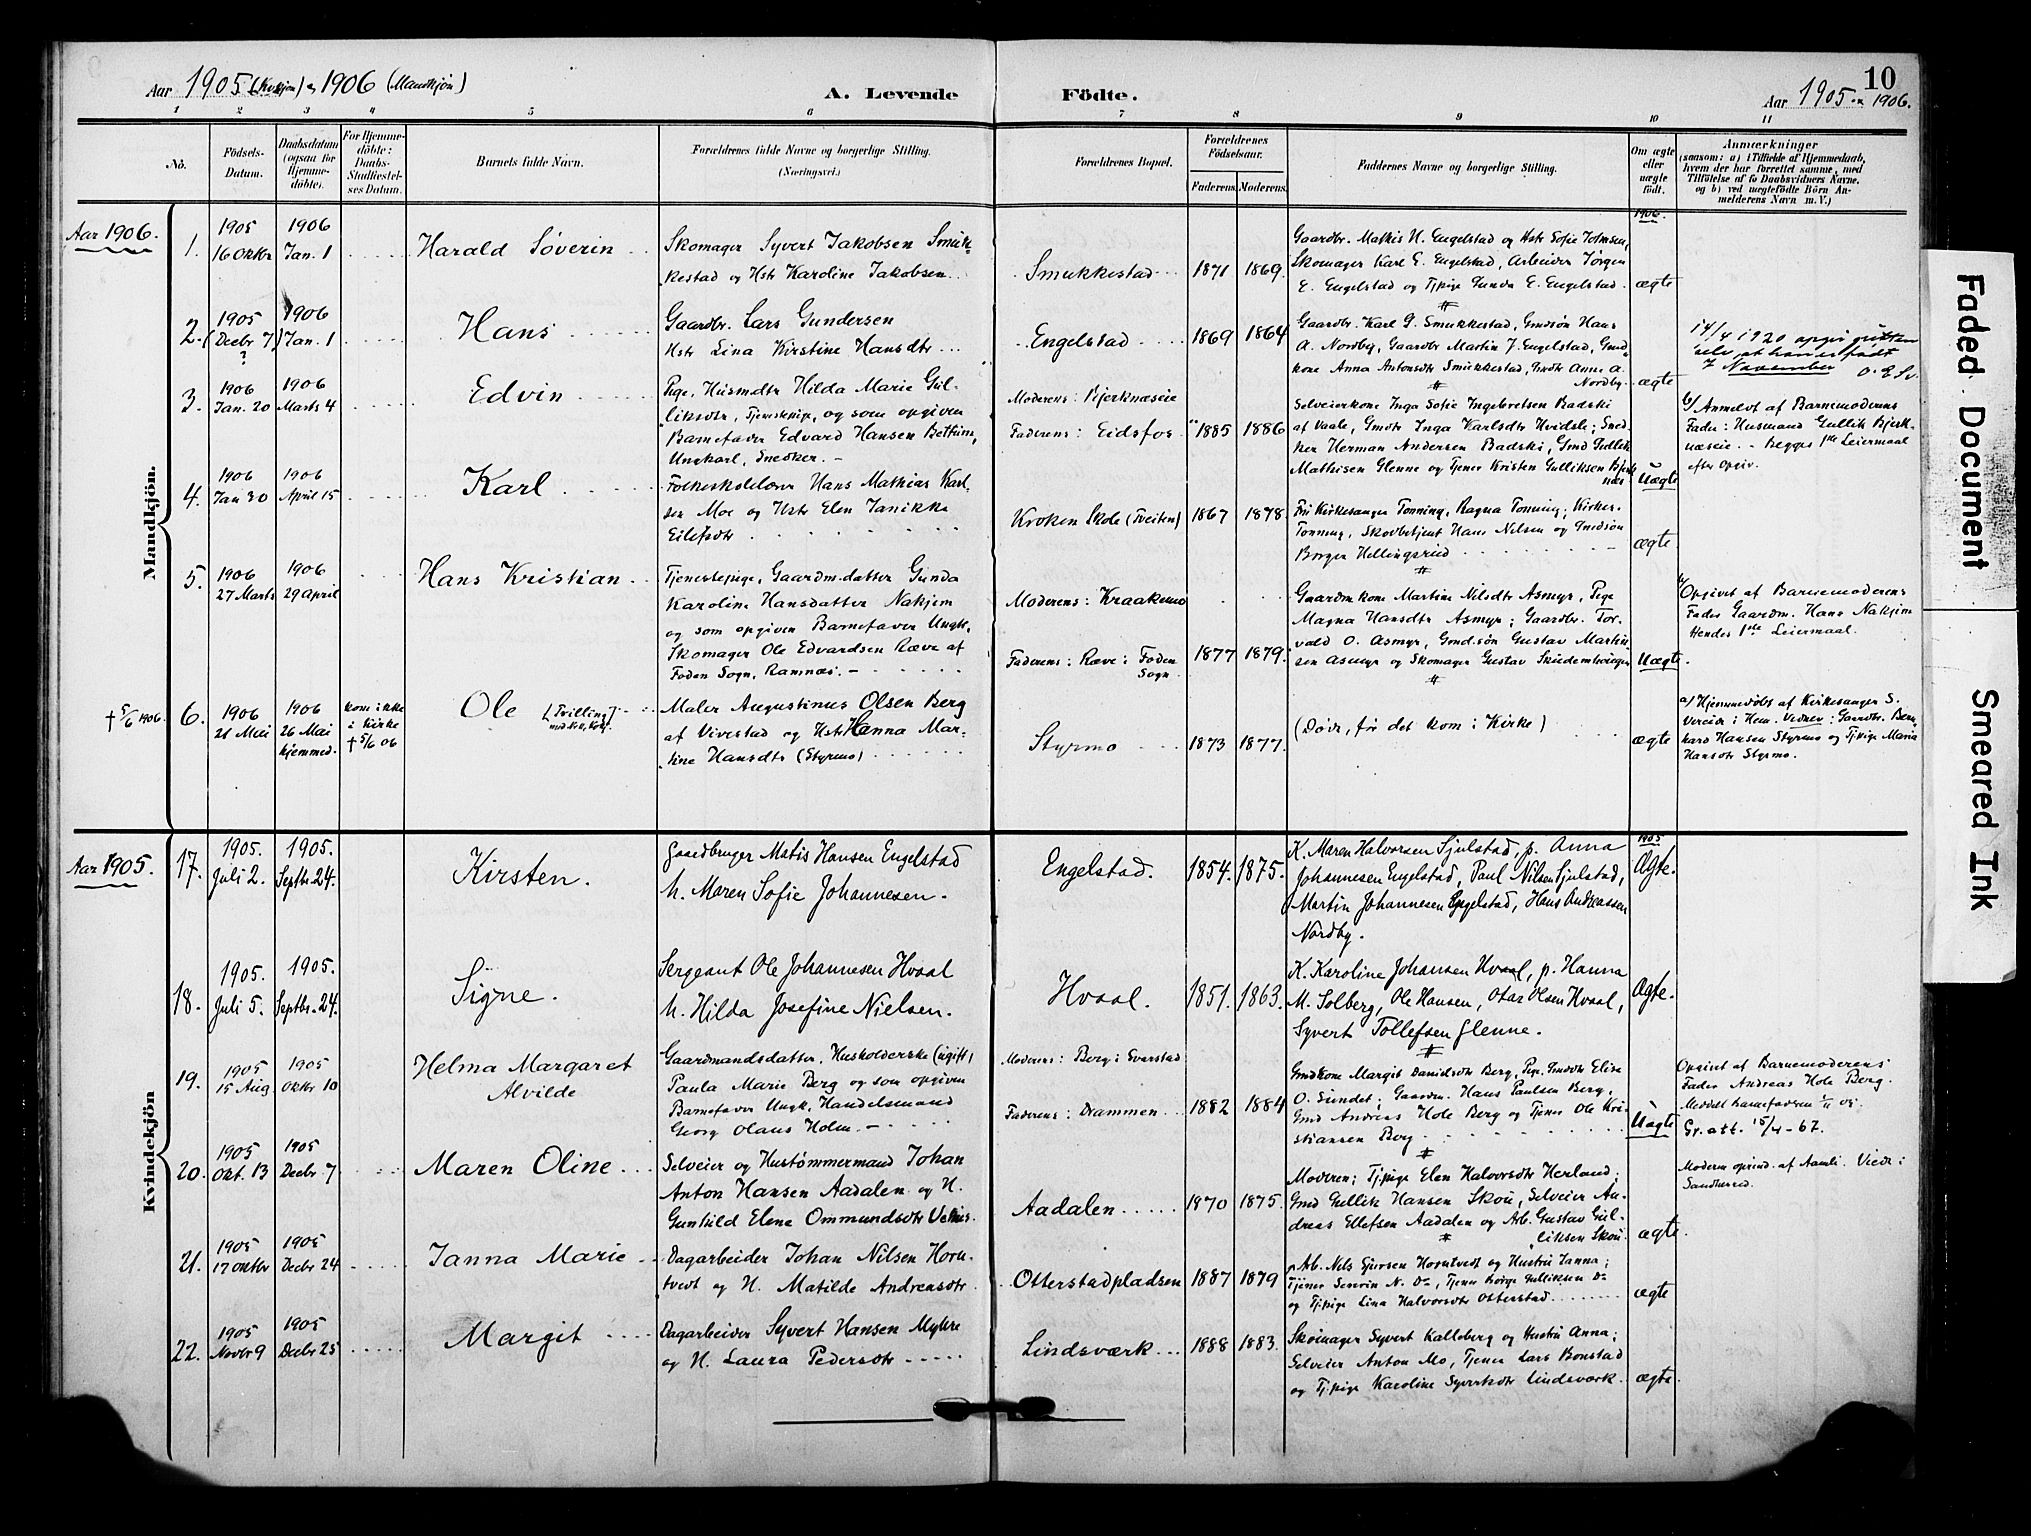 Aar 1905 (Kvkjøn) og 1906 (Mandkjøn)
A. Levende Födte.
Aar 1905 og 1906.
10
1 2 3 4 5 6 7 8 9 10 11
No.
Födsels-Datum.
Daabsdatum (ogsaa for Hjemme-döbte).
For Hjemme-döbte: Daabs-Stadfæstel-ses Datum.
Barnets fulde Navn.
Forældrenes fulde Navne og borgerlige Stilling.
(Næringsvei.)
Forældrenes Bopæl.
Forældrenes Födselsaar.
Faderens. Moderens.
Faddernes Navne og borgerlige Stilling.
Om ægte eller uægte födt.
Anmærkninger
(saasom: a) i Tilfælde af Hjemmedaab,
hvem der har forrettet samme, med
Tilföielse af to Daabsvidners Navne,
og b) ved uægtefödte Börn An-
melderens Navn m. V.)
Mandkjön.
Aar 1906.
1. 1905 16 Oktbr 1906 Jan. 1
Harald Söverin
Skomager Syvert Jakobsen Smuk-
kestad og Hstr Karoline Jakobsen
Smukkestad
1871 1869.
Gaardbr. Mathis H. Engelstad og Hstr Sofie Johnsen,
Skomager Karl E. Engelstad, Arbeider Jørgen
E. Engelstad og Tjpige Gunda E. Engelstad.
1906.
ægte
2. 1905 (Decbr 7) ? 1906 Jan. 1
Hans
Gaardbr. Lars Gundersen
Hstr Lina Kirstine Hansdtr
Engelstad
1869 1864
Gaardbr. Karl G. Smukkestad, Gmdsön Hans
A. Nordby, Gaardbr Martin J. Engelstad, Gmd
kone Anna Antonsdtr Smukkestad, Gmdtr Anne A.
Nordby.
ægte
14/4 1920 opgir gutten
selv at han er født
7 November O. E. Sv.
3. 1906 Jan. 20 1906 Marts 4
Edvin
Pige, Husmdtr Hilda Marie Gul-
liksdtr, Tjenestepige, og som opgiven
Barnefader Edvard Hansen Bettum,
Ungkarl, Snedker. –
Moderens: Bjerknæseie
Faderens: Eidsfos
1885 1886
Selveierkone Inga Sofie Ingebretsen Badski
af Vaale, Gmdtr Inga Karlsdtr Hvidsle; Sned-
ker Herman Andersen Badski, Gmd Gullik
Mathisen Glenne og Tjener Kristen Gulliksen Bjerk
næs
Uægte
b) Anmeldt af Barnemoderens
Fader: Husmand Gullik Bjerk-
næseie. – Begges 1ste Leiermaal
efter Opgiv.
4. 1906 Jan 30 1906 April 15
Karl
Folkeskolelærer Hans Mathias Karl-
sen Moe og Hstr Elen Janikke
Eilefsdtr
Kroken Skole (Tveiten)
1867 1878.
Fru Kirkesanger Tonning, Ragna Tonning; Kirkes.
Tonning, Skovbetjent Hans Nilsen og Gmdsön
Borger Hellingsrud
ægte
5. 1906 27 Marts 1906 29 April
Hans Kristian
Tjenestepige, Gaardm.datter Gunda
Karoline Hansdatter Nakjem
og som opgiven Barnefader Ungk.
Skomager Ole Edvardsen Ræve af
Foden Sogn, Ramnæs. –
Moderens: Kraakemo
Faderens: Ræve i Foden
Sogn
1877 1879.
Gaardmkone Martine Nilsdtr Asmyr, Pige
Magna Hansdtr Asmyr; Gaardbr. Tor-
vald O. Asmyr, Gmd.sön Gustav Martin
sen Asmyr og Skomager Gustav
Uægte.
Opgivet af Barnemoderens
Fader Gaardm. Hans Nakjem
Hendes 1ste Leiermaal.
† 5/6 1906.
6. 1906 21 Mai 1906 26 Mai hjemmed.
kom ikke i Kirke † 5/6 06
Ole [Tvilling]
Maler Augustinus Olsen Berg
af Vivestad og Hstr Hanna Mar-
tine Hansdtr (Styrmo)
Styrmo
1873 1877.
(Døde, før det kom i Kirke)
ægte
a) Hjemmedöbt af Kirkesanger S.
Vereide i Hem. Vidner: Gaardbr. Bern-
hard Hansen Styrmo og Tjpige Maria
Hansdtr Styrmo.
Kvindekjön
Aar 1905.
17. 1905. Juli 2. 1905. Septbr. 24.
Kirsten.
Gaardbruger Matis Hansen Engelstad
h. Maren Sofie Johannesen.
Engelstad.
1854. 1875.
K. Maren Halvorsen Sjulstad, p. Anna
Johannesen Engelstad, Paul Nilsen Sjulstad,
Martin Johannesen Engelstad, Hans Andreassen
Nordby.
1905
Ægte.
18. 1905. Juli 5. 1905. Septbr. 24.
Signe.
Sergeant Ole Johannesen Hvaal
h. Hilda Josefine Nielsen.
Hvaal.
1851. 1863.
K. Karoline Johansen Hvaal, p. Hanna
M. Solberg, Ole Hansen, Otar Olsen Hvaal,
Syvert Tollefsen Glenne.
Ægte.
19. 1905 15 Aug. 1905 Oktbr 10
Helma Margaret
Alvilde
Gaardmandsdatter, Husholderske (ugift)
Paula Marie Berg og som opgiven
Barnefader Ungk. Handelsmand
Georg Olaus Holm. –
Moderens: Berg i Evarstad
Faderens: Drammen
1882 1884
Gmdkone Margit Danielsdtr Berg, Pige Gmddtr Elise
O. Sundet; Gaardm. Hans Paulsen Berg,
Gmd Andreas Hole Berg og Tjener Ole Kri-
stiansen Berg
Uægte
Opgivet af Barnemoderens
Fader Andreas Hole Berg.
Meddelt barnefaderen 1/11 05.
Gr. att. 15/4-67.
20. 1905 Okt. 13 1905 Decbr 7
Maren Oline
Selveier og Hustømmermand Johan
Anton Hansen Aadalen og H.
Gunhild Elene Ommundsdtr
Aadalen
1870 1875.
Moderen; Tjpige Elen Halvorsdtr Herland;
Gmd Gullik Hansen Skou, Selveier An-
dreas Ellefsen Aadalen og Arb. Gustav Gul-
liksen Skou.
ægte
Moderen oprind. af Aamli. Viede i
Sandherred.
21. 1905 17 Oktbr 1905 Decbr 24
Janna Marie
Dagarbeider Johan Nilsen Horn-
tvedt og H. Matilde Andreasdtr
Otterstadpladsen
1887 1879
Arb. Nils Gursen Horntvedt og Hustru Janna;
Tjener Severin N. Do, Tjener Borge Gulliksen Do
og Tjpige Lina Halvorsdtr Otterstad
ægte
22. 1905 Novbr 9 1905 Decbr 25
Margit
Dagarbeider Syvert Hansen Myhre
og H. Laura Pedersdtr
Lindsværk
1888 1883.
Skomager Syvert Kalleberg og Hustru Anna;
Selveier Anton Mo, Tjener Lars Bonstad
og Tjpige Karoline Syvertsdtr Lindsværk.
ægte.
Faded Document
Smeared Ink